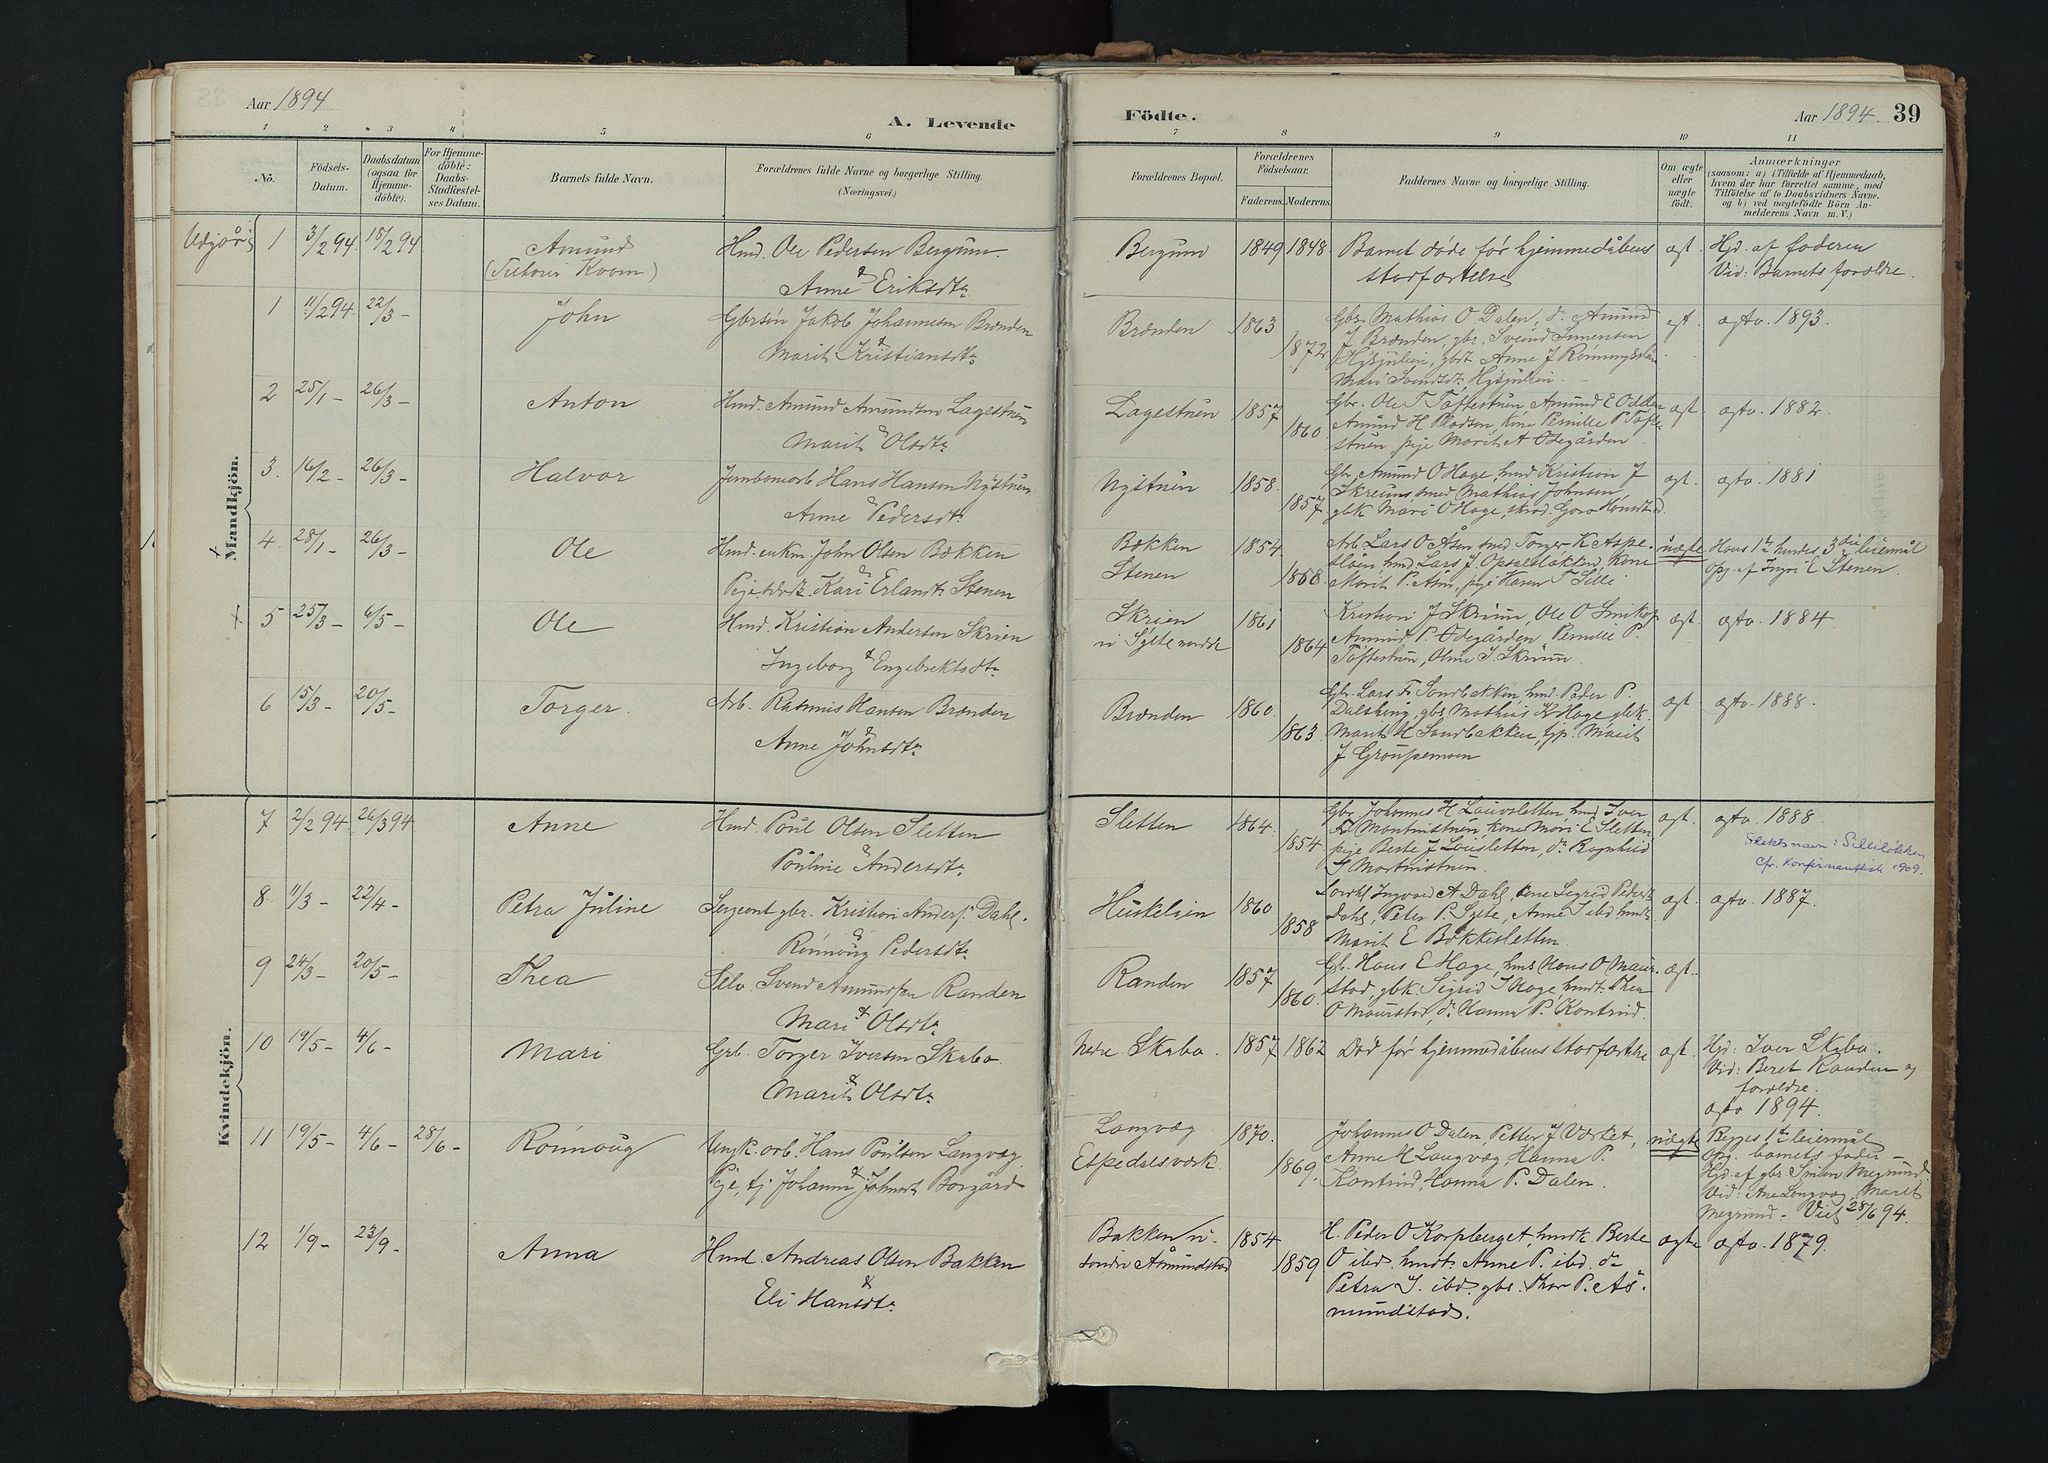 Aar 1894
A. Levende
Födte.
Aar 1894.
39
1 2 3 4 5 6 7 8 9 10 11
No.
Födsels-Datum.
Daabsdatum (ogsaa for Hjemmedöbte).
For Hjemmedöbte: Daabs-Stadfæstelses Datum.
Barnets fulde Navn.
Forældrenes fulde Navne og borgerlige Stilling. (Næringsvei.)
Forældrenes Bopæl.
Forældrenes Födselsaar.
Faderens. Moderens.
Faddernes Navne og borgerlige Stilling.
Om ægte eller uægte födt.
Anmærkninger
(saasom: a) i Tilfælde af Hjemmedaab, hvem der har forrettet samme, med Tilföielse af to Daabsvidners Navne, og b) ved uægtefödte Börn Anmelderens Navn m. V.)
Mandkjön.
1 3/2 94 15/2 94 Amund
Hmd. Ole Pedersen Bergum
& Anne Eriksdtr
Bergum 1849 1848
Barnet døde før hjemmedåbens
stadfæstelse
ægt.
Hjd. af faderen
Vid: Barnets forældre.
1 11/2 94. 22/3 – John
Gbrsøn Jakob Johannesen Brænden
& Marit Kristiansdtr
Brænden 1863 1872
Gbr. Mathias O Dalen, do Amund
J Brænden, gbr. Svend Simensen
ægt. ægtv. 1893.
2 25/1 – 26/3 – Anton
Hmd. Amund Amundsen Lagestuen
& Marit Olsdtr
Lagestuen 1857 1860
Gbr. Ole T Toftestuen Amund E Odden
stuen pige Marit A Ødegården
ægt ægtv. 1882.
3. 16/2 – 26/3 – Halvor
Jernbanearb Hans Hansen Nystuen
& Anne Pedersdtr
Nystuen 1858. 1857
Gbr Amund O Hage, hmd Kristian J
gbk Mari O Hage,
ægt. ægtv. 1881
4. 28/1 – 26/3 – Ole
Hmd. enkm. John Olsen Bækken
Pige, Kari Erlandsdtr Stenen
Bækken
Stenen 1854 1868
Arb Lars O Åsen
uægte
Hans 1te hendes 3die leiermål
Opg. af Ingri E Stenen.
5 25/3 – 6/5 – Ole
Hmd. Kristian Andersen Skrien
& Ingeborg Engebrektsdtr
Skrien 1861 1864
Kristian J Skriun, Ole O
Amund P. Ødegården Pernille P
Toftestuen,
ægt. ægtv. 1884
6 15/3 – 20/5 – Torger.
Arb. Rasmus Hansen Brænden
& Anne Johnsdtr
Brænden 1860 1863
Gbr. Lars F. Sandbakken hmd. Peder P.
Mathias K Hage gbk.
Marit H Sandbakken, Marit
J Graupemoen
ægt ægtv. 1888.
Kvindekjön.
7 2/2 94. 26/3 94 Anne
Hmd. Poul Olsen Sletten
& Pouline Andersdtr
Sletten 1864. 1854
Gbr Johannes H Lauvsletten, hmd Iver
kone Mari E Sletten
ægt. ægtv. 1888
Slektsnavn: Silliløkken
cfr. Konfirmantliste 1909.
8. 11/3 – 22/4 – Petra Juline
Sergeant gbr. Kristian Anders. Dahl.
& Rønnoug Pedersdtr
Huskelien 1860 1858
Ingvald A Dahl, kone Sigrid Pedersdtr
Dahl, Peter P.
Marit E Bækkesletten
ægt. ægtv. 1887.
9 24/3 – 20/5 – Thea
Selv. Svend Amundsen Randen
& Mari Olsdtr
Randen 1857 1860.
Gbr. Hans E Hage, hmd Hans O Maur-
stad, gbk Sigrid J Hage hmdt. Thea
O Maurstad, do Hanna P. Kontrud.
ægt.
10 19/5 – 4/6 – Mari
Gbr. Torger Iversen Skabo
& Marit Olsdtr
Nedre Skabo. 1857 1862
Død før hjemmedåbens stadfæstelse
ægt.
Hjd: Iver Skabo.
Vid: Beret Randen og
forældre.
ægtv 1894.
11 19/5 – 4/6 – 28/6 – Rønnoug
Ungk. arb. Hans Poulsen Langvæg
Pige, tj Johanne Johnsdt Borgård
Langvæg
Espedalsværk 1870. 1869.
Johannes O Dalen, Petter J Værket,
Anne H Langvæg, Hanna P.
Kontrud, Hanna P. Dalen.
uægte
Begges 1te leiermål
Opg. barnets fader –
Vid: Ane Langvæg, Marit
Megrund – Viet 28/6 94.
12 1/9 – 23/9 – Anna
Hmd. Andreas Olsen Bakken
& Eli Hansdtr
Bakken u.
søndre Åsmundstad 1854 1859
H. Peder O Korpberget, hmdk Berte
O ibd. hmdt. Anne P. ibd. do
Petra J. ibd. gbr. Thor P. Ås-
mundstad.
ægte ægtv. 1879.